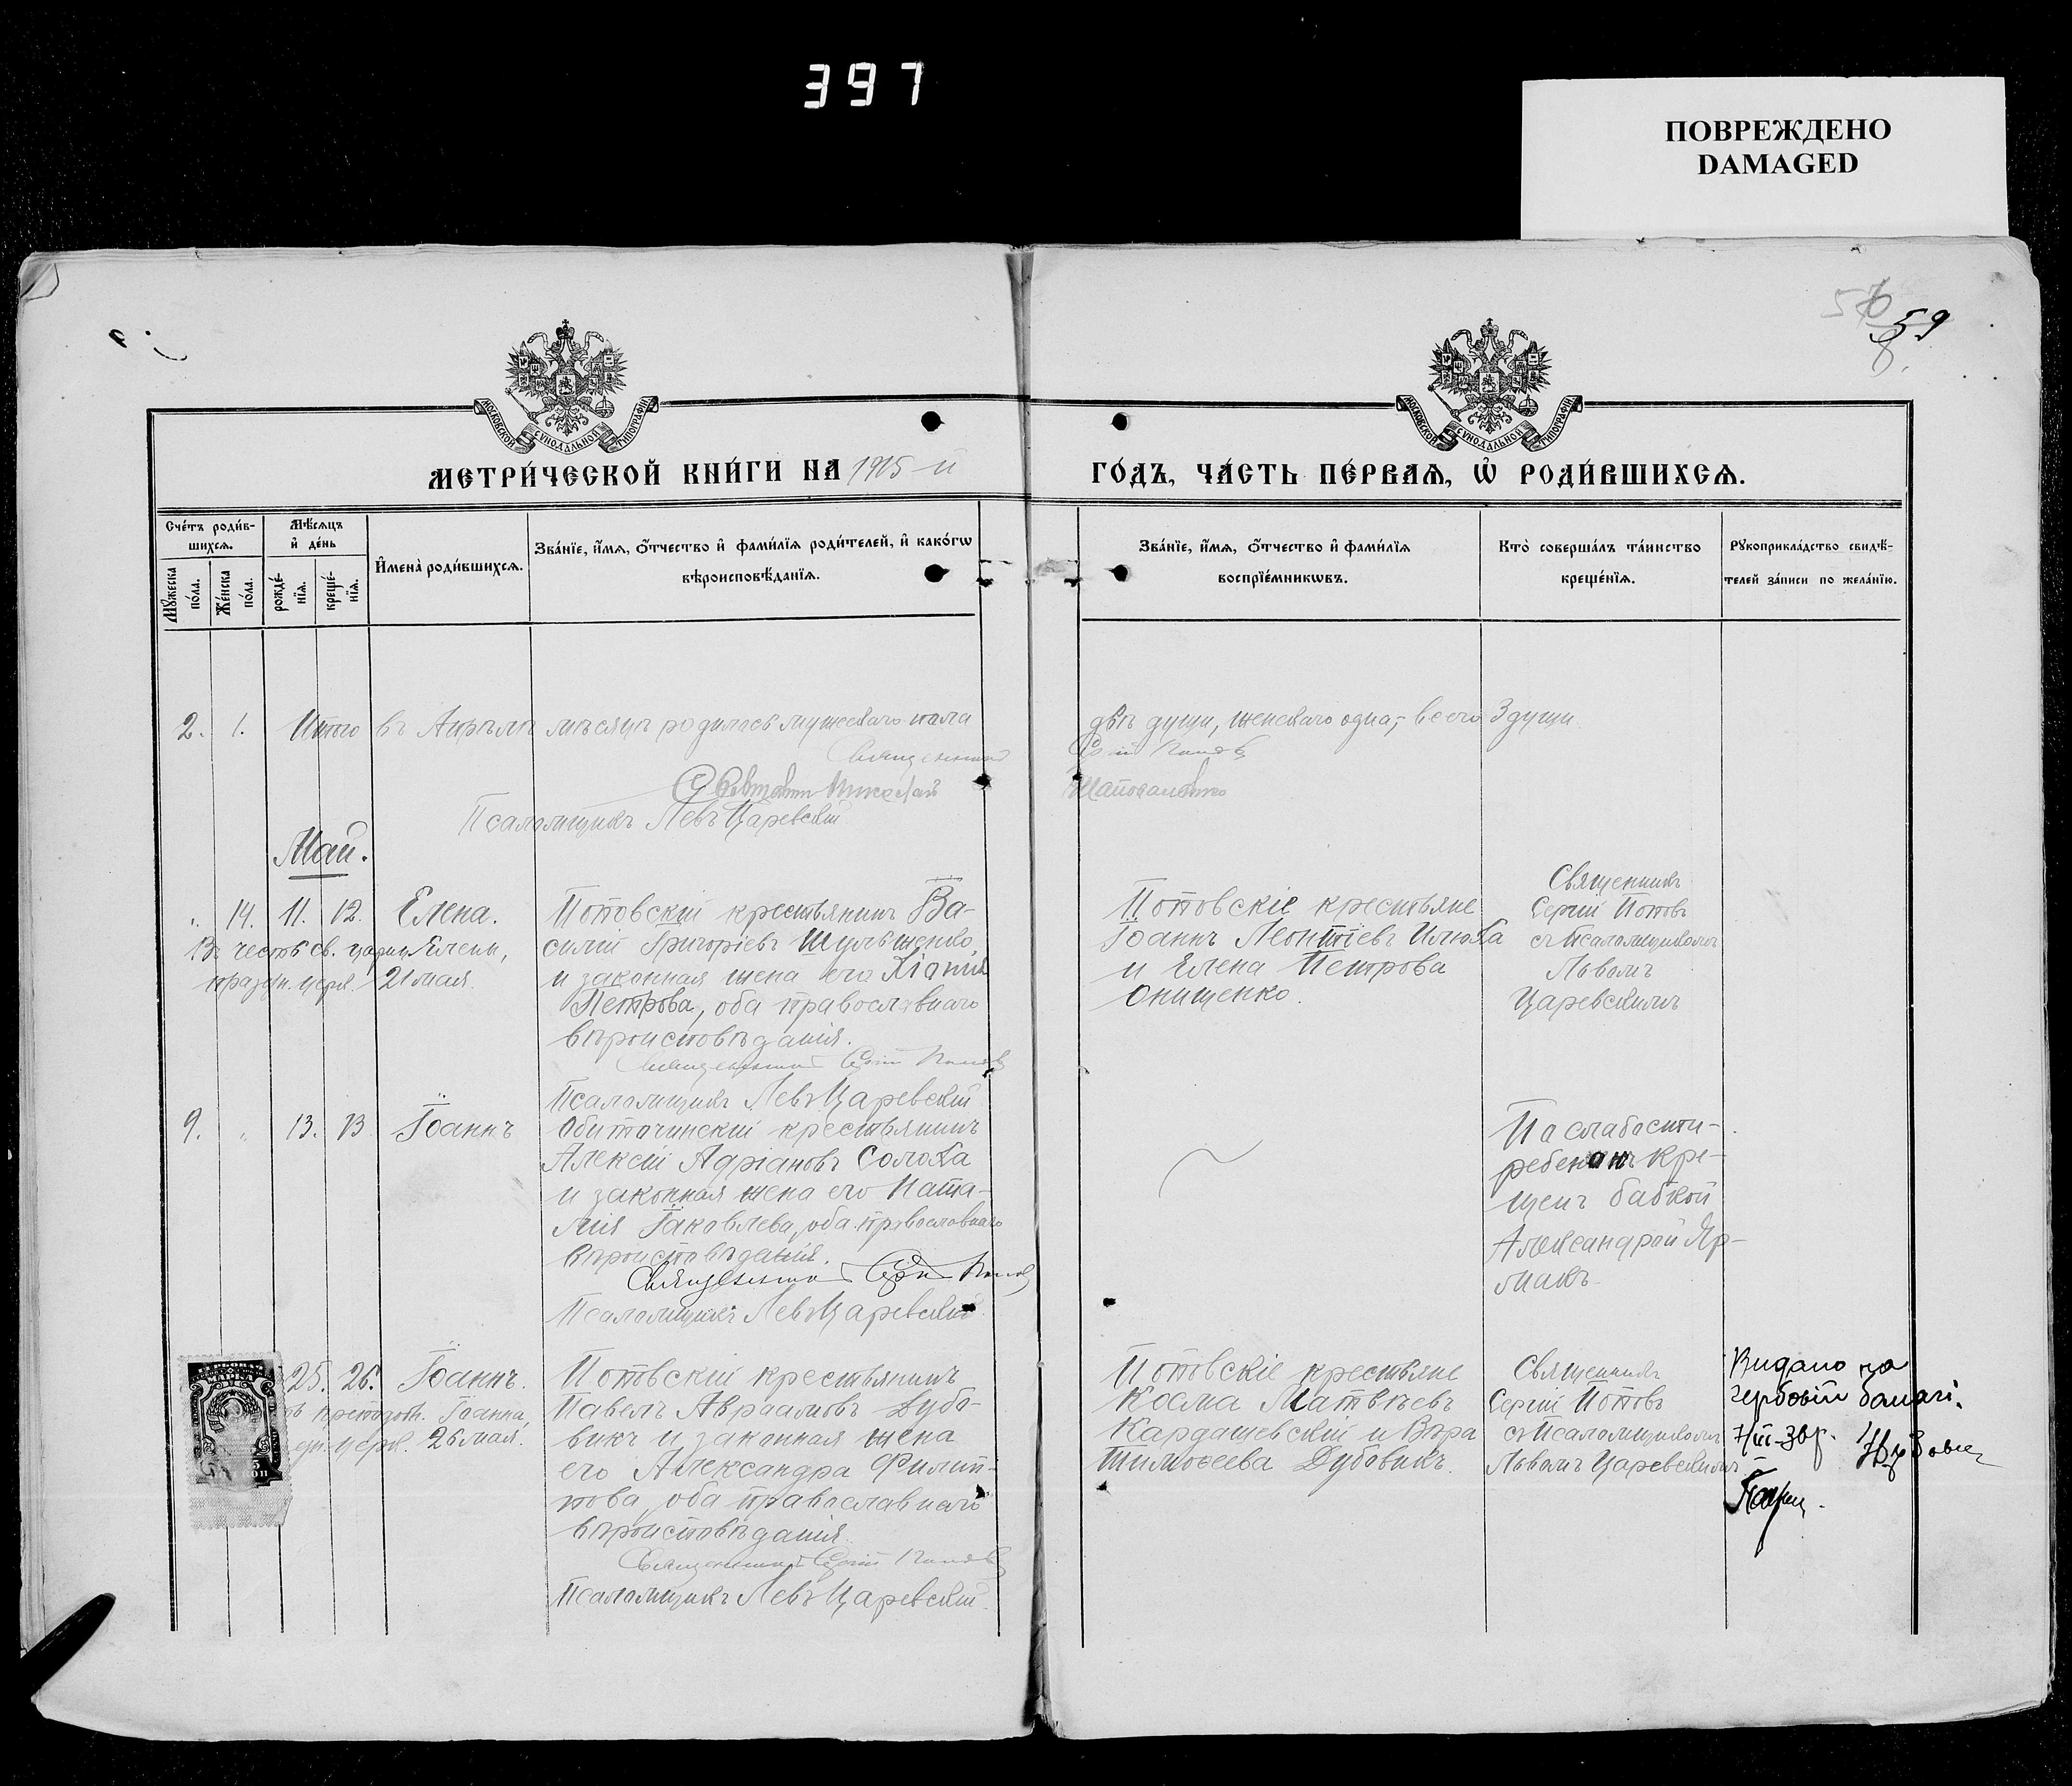 397
ПОВРЕЖДЕНО
DAMAGED
59
МОСКОВСКОЙ СѴНОДАЛЬНОЙ ТИПОГРАФІИ
МОСКОВСКОЙ СѴНОДАЛЬНОЙ ТИПОГРАФІИ
МЕТРИ́ЧЕСКОЙ КНИ́ГИ НА 1915-й
ГО́ДЪ, ЧА́СТЬ ПЕ́РВАѦ, Ѡ҆ РОДИ́ВШИХСѦ.
Сче́тъ роди́в-
шихсѧ.
Мꙋ́жеска по́ла.
Же́нска по́ла.
Мѣ́сѧцъ
и҆ де́нь
рожде́-
нїѧ.
креще́-
нїѧ.
И҆мена̀ роди́вшихсѧ.
Зва́нїе, и҆́мѧ, ѻ҆́тчество и҆ фами́лїѧ роди́телей, и҆ како́гѡ
вѣроисповѣ́данїѧ.
Зва́нїе, и҆́мѧ, ѻ҆́тчество и҆ фами́лїѧ
воспрїе́мникѡвъ.
Кто̀ соверша́лъ та́инство
креще́нїѧ.
Рꙋкоприкла́дство свидѣ́-
телей за́писи по жела́нїю.
2. 1. Итого въ Апрѣлѣ мѣсяцѣ родилось мужескаго пола
двѣ души, женскаго одна, всего 3 души.
Священникъ
Сергій Поповъ
Псаломщикъ Левъ Царевскій
Май.
" 14. 11. 12. Елена.
Въ честь св. царицы Елены,
празд. церк. 21 мая.
Поповскій крестьянинъ Ва-
силій Григоріевъ Шульженко
и законная жена его Кіонія
Петрова, оба православнаго
вѣроисповѣданія.
Священникъ Сергій Поповъ
Псаломщикъ Левъ Царевскій
Поповскіе крестьяне
Іоаннъ Леонтіевъ Илюха
и Елена Петрова
Онищенко.
Священникъ
Сергій Поповъ
съ Псаломщикомъ
Львомъ
Царевскимъ
9. " 13. 13 Іоаннъ
Обиточинскій крестьянинъ
Алексій Адріановъ Солоха
и законная жена его Ната-
лія Іаковлева, оба православнаго
вѣроисповѣданія.
Священникъ Сергій Поповъ
Псаломщикъ Левъ Царевскій
По слабости-
ребенокъ кре-
щенъ бабкой
Александрой Яр-
макъ.
МАРКА
25. 26. Іоаннъ.
Іоанна,
церк. 26 мая.
Поповскій крестьянинъ
Павелъ Авраамовъ Дубо-
викъ и законная жена
его Александра Филип-
пова, оба православнаго
вѣроисповѣданія.
Священникъ Сергій Поповъ
Псаломщикъ Левъ Царевскій.
Поповскіе крестьяне
Косма Матвѣевъ
Кардашевскій и Вѣра
Тимоѳеева Дубовикъ.
Священникъ
Сергій Поповъ
съ Псаломщикомъ
Львомъ Царевскимъ
Видано на
гербовій